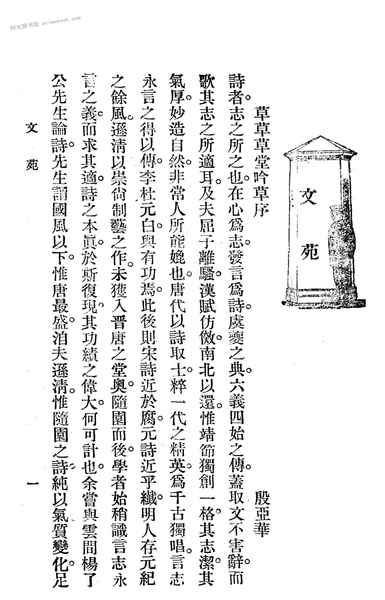 文苑
草草草堂吟草序
殷亞華
詩者。志之所之也。在心爲志。發言爲詩。虞夔之典。六義四始之傳。蓋取文不害辭。而
歌其志之所適耳。及夫屈子離騷。漢賦仿儌。南北以還。惟靖節獨創一格。其志潔。其
氣厚。妙造自然。非常人所能媲也。唐代以詩取士。粹一代之精英。爲千古獨唱。言志
永言之得以傳。李杜元白。與有功焉。此後則宋詩近於腐。元詩近乎纖。明人存元紀
之餘風。遜清以崇尙制藝之作。未獲入晋唐之堂奧。隨園而後。學者始稍識言志永
言之義。而求其適。詩之本眞。於斯復現。其功績之偉大。何可計也。余嘗與雲間楊了
公先生論詩。先生謂國風以下。惟唐最盛。洎夫遜清。惟隨園之詩。純以氣質變化。足
文苑
一